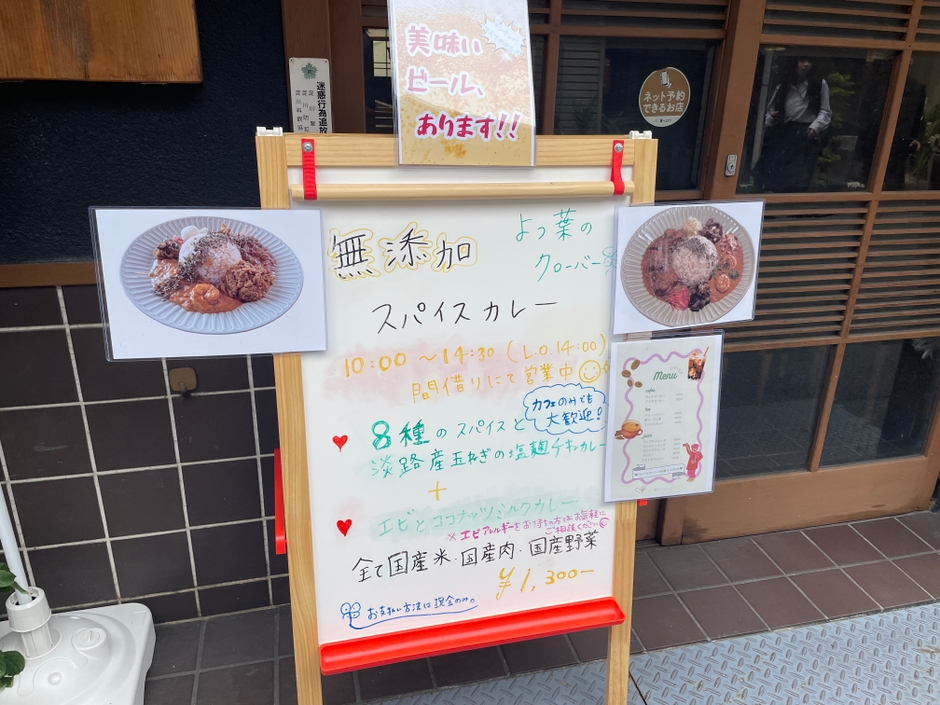 美味い
ビール、
あります!!
迷惑行為追放
ネット予約
できるお店
無添加
よつ葉の
クローバー
スパイスカレー
10:00 ~14:30 (L.O.14:00)
間借りにて営業中
カフェのみでも
大歓迎!
8種のスパイスと
淡路産玉ねぎの塩麹チキンカレー
+
エビとココナッツミルクカレー
※エビアレルギーをお持ちの方はお気軽に
ご相談ください
全て国産米・国産肉・国産野菜
¥1,300-
お支払い方法は現金のみ。
Menu